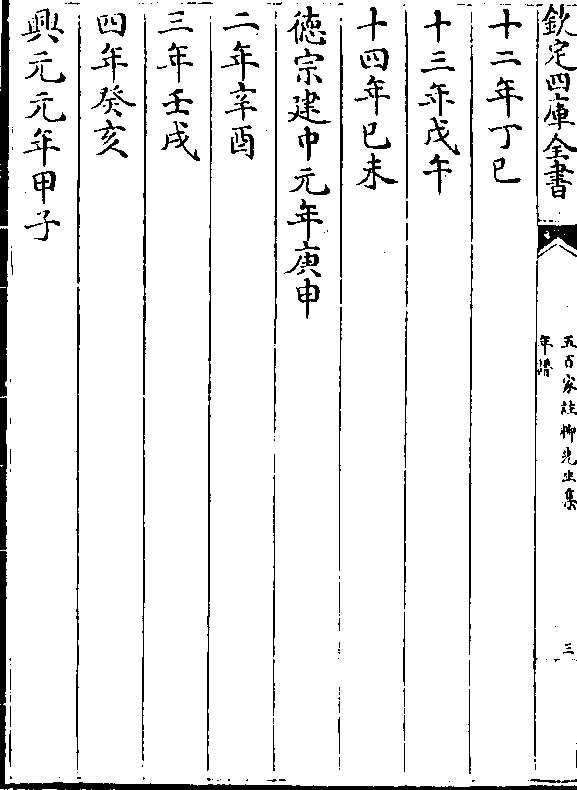 欽定四庫全書
五百家註柳先生集
年譜
三
十二年丁巳
十三年戊午
十四年已未
德宗建中元年庚申
二年辛酉
三年壬戌
四年癸亥
興元元年甲子